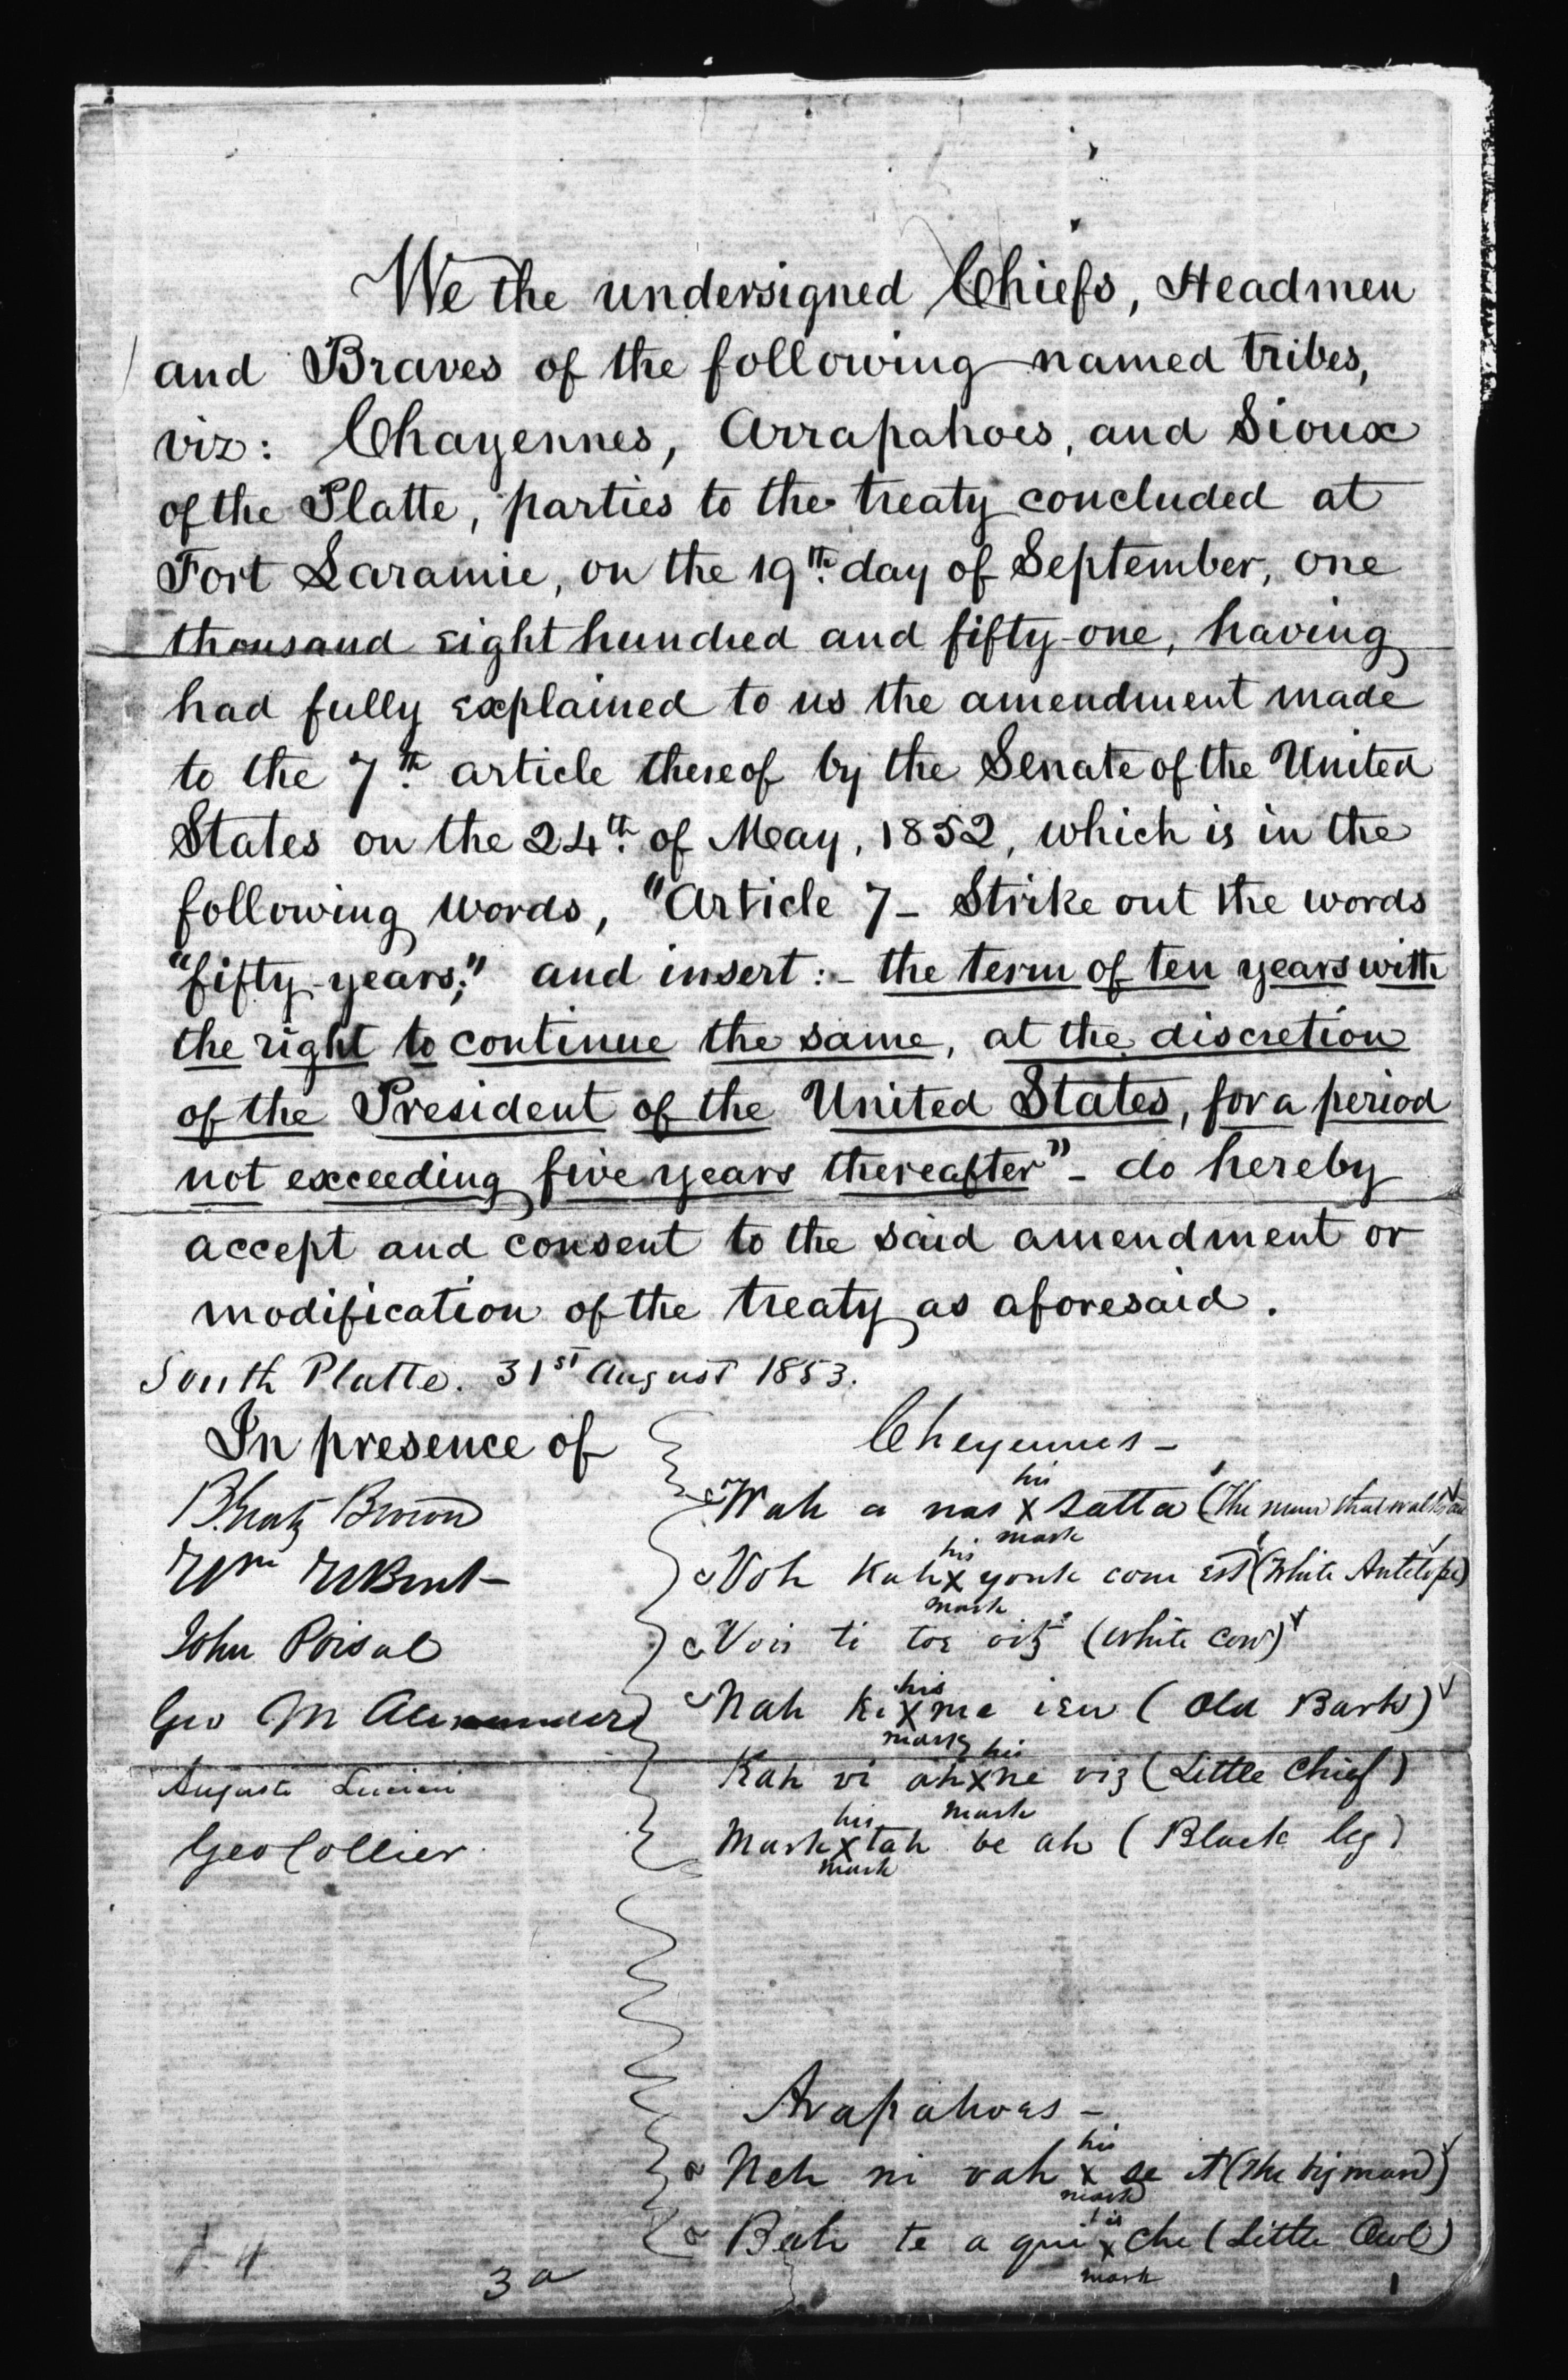 We the undersigned Chiefs, Headmen
and Braves of the following named tribes,
viz: Chayennes, Arrapahoes, and Sioux
of the Platte, parties to the treaty concluded at
Fort Laramie, on the 19th. day of September, one
thousand eight hundred and fifty-one, having
had fully explained to us the amendment made
to the 7th. article thereof by the Senate of the United
States on the 24th. of May, 1852, which is in the
following words, "Article 7 - Strike out the words
"fifty-years;" and insert: - the term of ten years with
the right to continue the same, at the discretion
of the President of the United States, for a period
not exceeding five years thereafter" - do hereby
accept and consent to the said amendment or
modification of the treaty as aforesaid.
South Platte. 31st August 1853.
In presence of
B. Gratz Brown
Wm W Bent
John Poisal
Geo M Alexander
Auguste
Geo Collier
Cheyennes -
Wah a nas his x mark satta (The man that walks
Voh Kah his x mark yonk com est (White Antelope)
Vois ti toe oitz (White Cow)
Nah ki his x mark me ien (Old Bark)
Kah vi ah his x mark ne viz (Little Chief)
Mark his x mark tah be ah (Black leg)
Arapahoes -
Neh ni vah his x mark se it (The big man)
Beh te a qui his x mark che (Little Owl)
3a
1